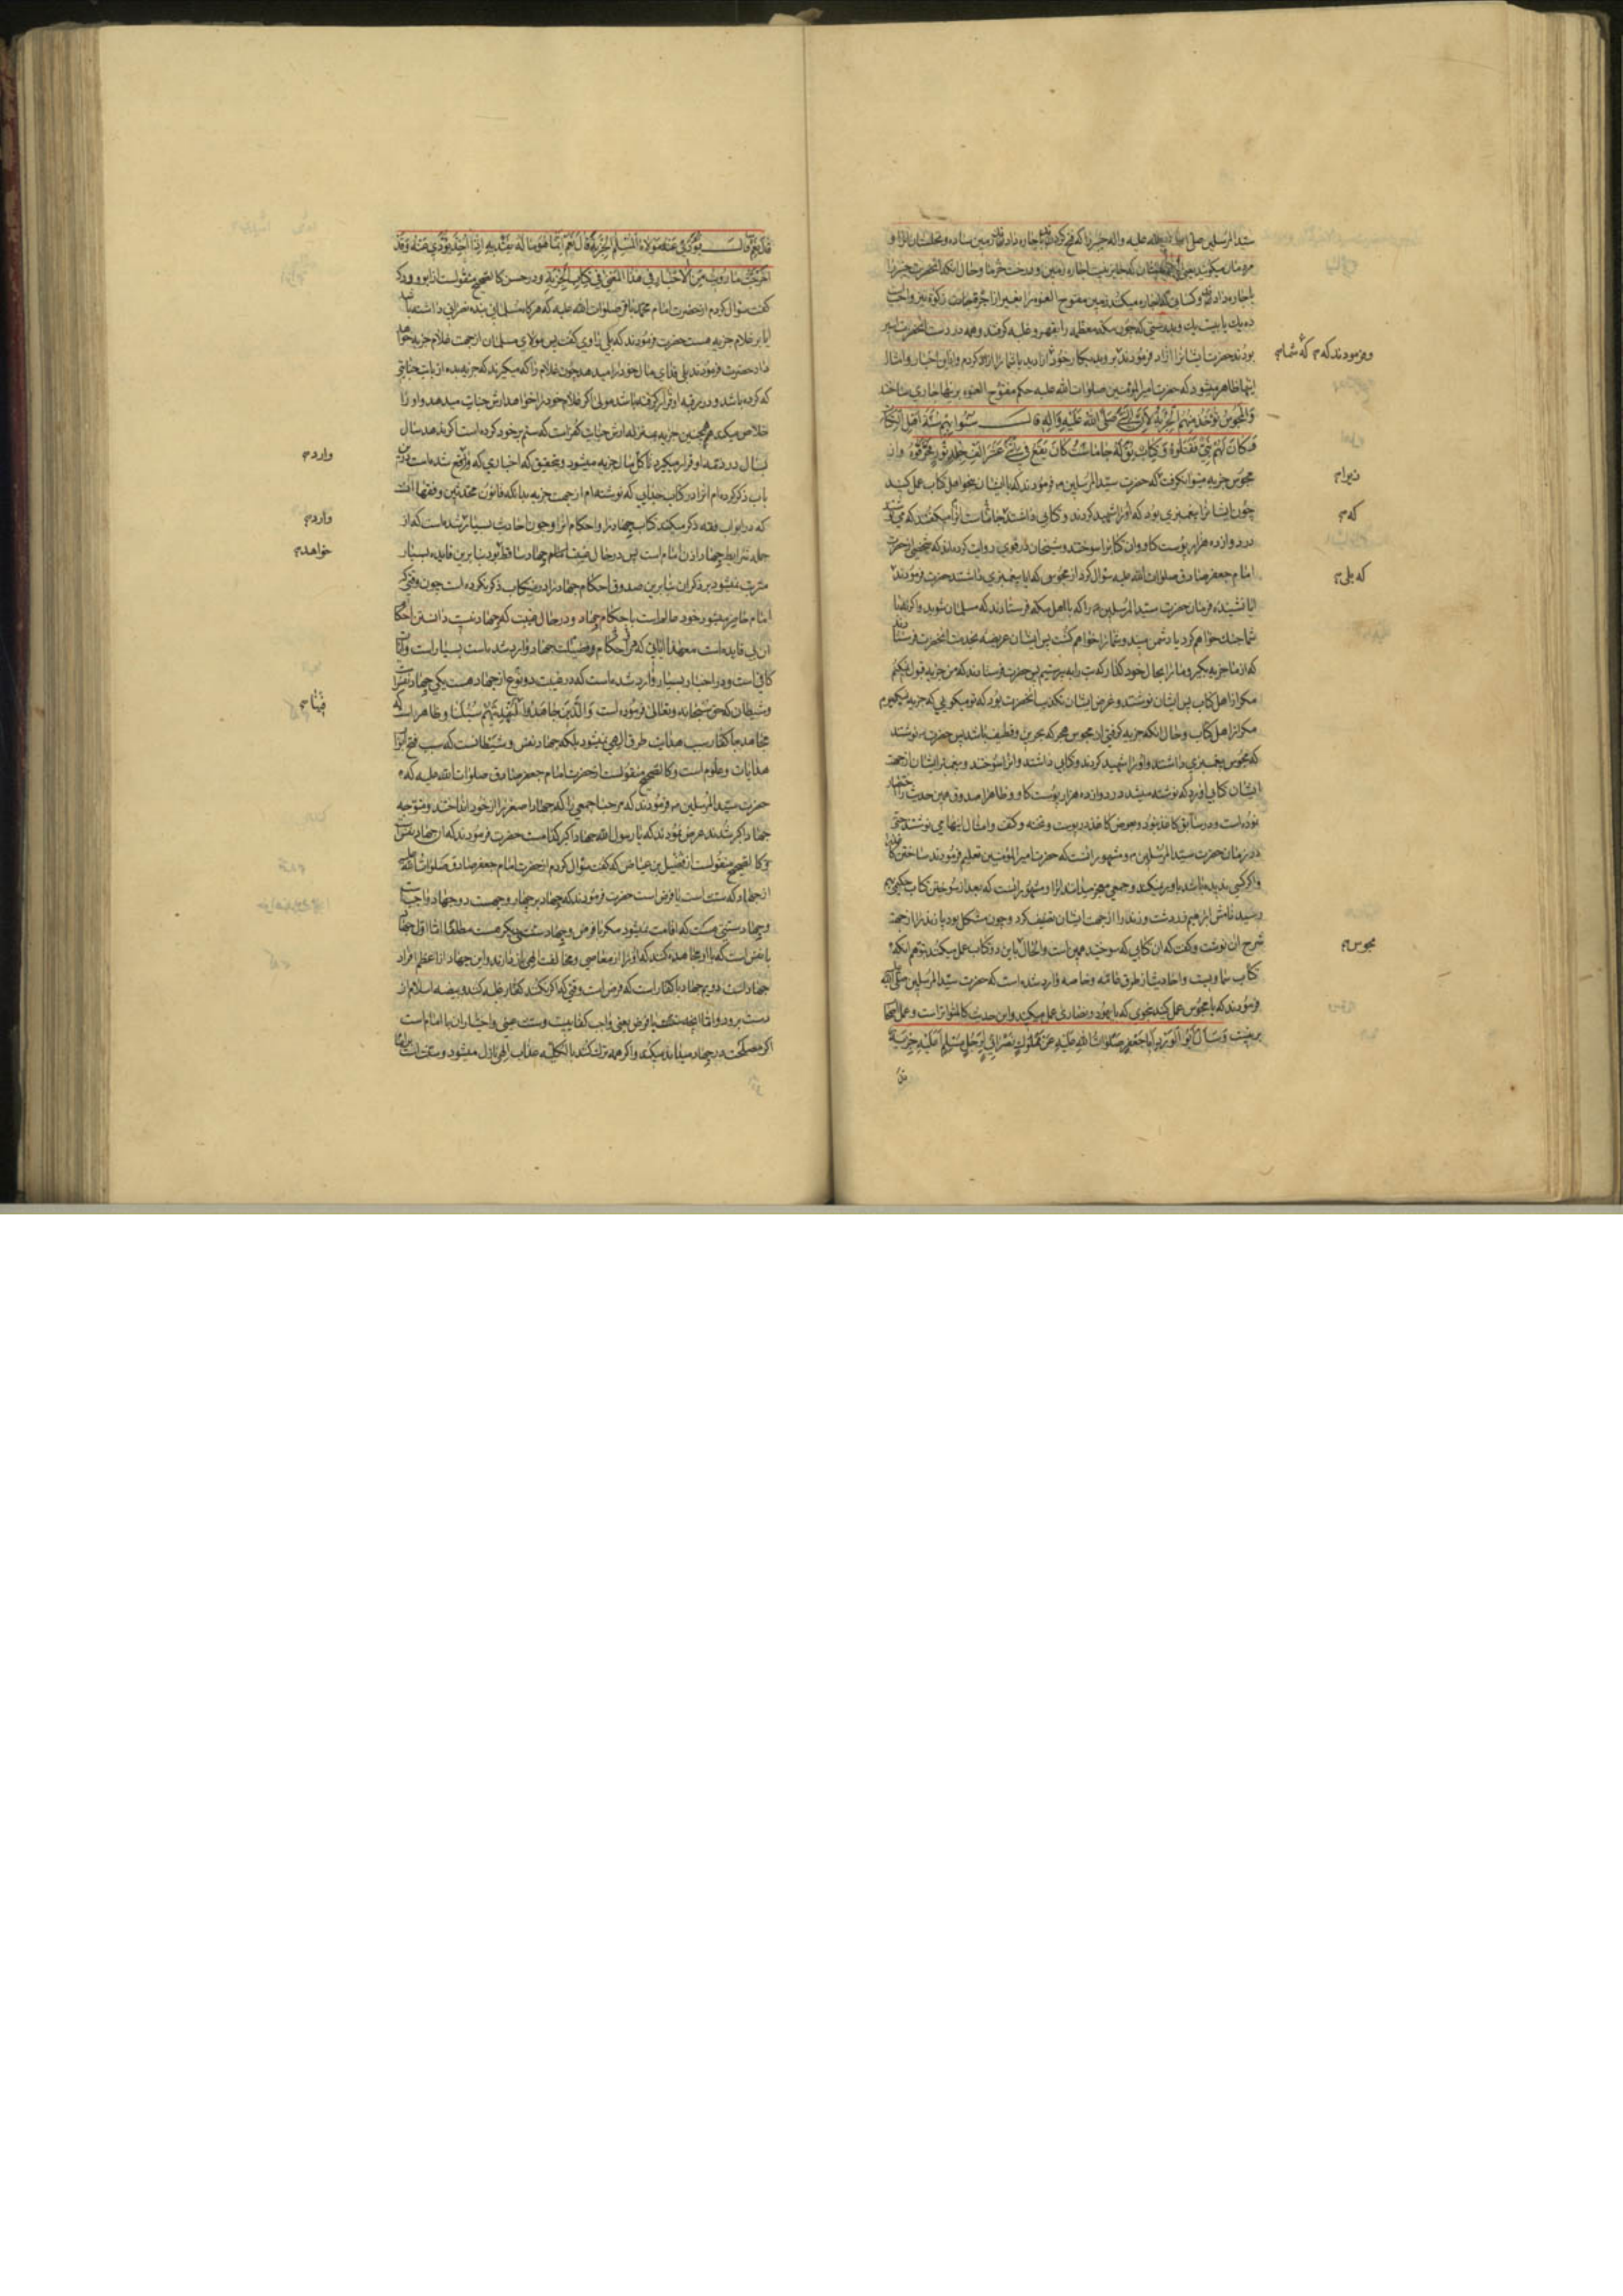 سید المرسلین صلی الله علیه واله خیبر را که فتح کردند باجاره دادند زمین ساده و نخلستان را و
مردمان میکویند یعنی ایشان که جایز نیست اجاره زمین و درخت خرما و حال آنکه آنحضرت خیبر را
باجاره دادند و کسانی که اجاره میکنند زمین مفتوح العنوه را بغیر از اجرة حاصل زکوة نیز واجبست
ده یك یا بیست یك و بدرستی که چون مکه معظمه را بقهر و غلبه کرفتند و همه در دست آنحضرت اسیر
بودند حضرت ایشانرا آزاد فرمودند بروید بکار خود آزادید یا شما را آزاد کردم و از این اخبار و امثال
اینها ظاهر میشود که حضرت امیر المؤمنین صلوات الله علیه حکم مفتوح العنوه بر اینها جاری ساختند
وَالْمَجُوسُ تُؤْخَذُ مِنْهُمُ الْجِزْيَةُ لِأَنَّ النَّبِيَّ صَلَّى اللهُ عَلَيْهِ وَآلِهِ قَالَ سَنُّوا بِهِمْ سُنَّةَ أَهْلِ الْكِتَابِ
وَكَانَ لَهُمْ نَبِيٌّ فَقَتَلُوهُ وَكِتَابٌ يُقَالُ لَهُ جَامَاسْتُ كَانَ يَقَعُ فِي اثْنَيْ عَشَرَ أَلْفَ جِلْدِ ثَوْرٍ فَحَرَّقُوهُ و از
مجوس جزیه میتوان کرفت که حضرت سید المرسلین م فرمودند که با ایشان بنحو اهل کتاب عمل کنید
چون ایشانرا پیغمبری بود که او را شهید کردند و کتابی داشتند جاماست آنرا میکفتند که می نوشتند
در دوازده هزار پوست کاو و آن کتابرا سوختند و شیخان در قوی روایت کرده اند که شخصی از حضرت
امام جعفر صادق صلوات الله علیه سؤال کرد از مجوس که ایا پیغمبری داشتند حضرت فرمودند
ایا نشنیده فرمان حضرت سید المرسلین م را که باهل مکه فرستادند که مسلمان شوید و اکر نه با
شما جنك خواهم کرد یا دشمن میند و شما را خواهم کشت پس ایشان عریضه بخدمت آنحضرت فرستادند
که از ما جزیه بکیر و ما را بحال خود کذار که بت را بپرستیم پس حضرت فرستادند که من جزیه قبول نمیکنم
مکر از اهل کتاب پس ایشان نوشتند و غرض ایشان تکذیب آنحضرت بود که تو میکویی که جزیه نمیکیرم
مکر از اهل کتاب و حال آنکه جزیه کرفتی از مجوس هجر که بحرین و قطیف باشد پس حضرت م نوشتند
که مجوس پیغمبری داشتند و او را شهید کردند و کتابی داشتند و آنرا سوختند و پیغمبر ایشان از جهت
ایشان کتابی آورد که نوشته میشد در دوازده هزار پوست کاو و ظاهرا صدوق همین حدیث را اختصار
نموده است و در سابق کاغذ نبود و عوض کاغذ در پوست و تخته و کتف و امثال اینها می نوشتند حتی
در زمان حضرت سید المرسلین م و مشهور آنست که حضرت امیر المؤمنین تعلیم فرمودند ساختن کاغذ را
شرح آن نوشت و کفت که آن کتابی که سوختید همین است و الحال باین دو کتاب عمل میکنند بتوهم آنکه
کتاب سماویست و احادیث از طرق عامه و خاصه وارد شده است که حضرت سید المرسلین صلی الله
فرمودند که با مجوس عمل کنید بنحوی که با یهود و نصاری عمل میکنید و این حدیث کالمتواتر است و عمل اصحاب
بر اینست وَسَأَلَ أَبُو الْوَرْدِ أَبَا جَعْفَرٍ صَلَوَاتُ اللهِ عَلَيْهِ عَنْ مَمْلُوكٍ نَصْرَانِيٍّ لِرَجُلٍ مُسْلِمٍ أَعَلَيْهِ جِزْيَةٌ
و فرمودند که م که شما م
که م
که بلی م
مجوس م
قَالَ نَعَمْ قَالَ فَيُؤَدِّي عَنْهُ مَوْلَاهُ الْمُسْلِمُ الْجِزْيَةَ قَالَ نَعَمْ إِنَّمَا هُوَ مَالُهُ يَفْتَدِيهِ إِذَا أُخِذَ يُؤَدِّي عَنْهُ وَقَدْ
أَخْرَجْتُ مَا رَوَيْتُ مِنَ الْأَخْبَارِ فِي هَذَا الْمَعْنَى فِي كِتَابِ الْجِزْيَةِ و در حسن کالصحیح منقولست از ابو ورد که
کفت سؤال کردم از حضرت امام محمد باقر صلوات الله علیه که هر کاه مسلمانی بنده نصرانی داشته باشد
ایا بر غلام جزیه هست حضرت فرمودند که بلی راوی کفت پس مولای مسلمان از جهت غلام جزیه خواهد
داد حضرت فرمودند بلی فدای مال خود را میدهد چون غلام را که میکیرند که جزیه بده از بابت جنایتی
که کرده باشد و در رقبه او قرار کرفته باشد مولی اکر غلام خود را خواهد ارش جنایت میدهد و او را
خلاص میکند همچنین جزیه بمنزله ارش جنایت کفر است که ستم بر خود کرده است اکر ندهد سال
بسال در ذمه او قرار میکیرد تا کل مال جزیه میشود و بتحقیق که اخباری که واقع شده است درین
باب ذکر کرده ام آنرا در کتاب جدایی که نوشته ام از جهت جزیه بدانکه قانون محدثین و فقها آنست
که در ابواب فقه ذکر میکنند کتاب جهاد را و احکام آنرا و چون احادیث بسیار شده است که از
جمله شرایط جهاد اذن امام است پس در حال غیبت امام جهاد ساقط بود بنا برین فایده بسیار
مترتب نمیشود بر ذکر آن بنا برین صدوق احکام جهاد را درین کتاب ذکر نکرده است چون وقتی که
امام حاضر میشود خود عالم است باحکام جهاد و در حال غیبت که جهاد نیست دانستن احکام
کافی است و در اخبار بسیار وارد شده است که در غیبت دو نوع از جهاد هست یکی جهاد نفس است
و شیطان که حق سبحانه و تعالی فرموده است وَالَّذِينَ جَاهَدُوا فِينَا لَنَهْدِيَنَّهُمْ سُبُلَنَا و ظاهر است که
مجاهده با کفار سبب هدایت طرق الهی نمیشود بلکه جهاد نفس و شیطانست که سبب فتح ابواب
هدایات و علوم است و کالصحیح منقولست از حضرت امام جعفر صادق صلوات الله علیه که
حضرت سید المرسلین م فرمودند که مرحبا جمعی را که جهاد اصغر را از خود انداختند و متوجه
جهاد اکبر شدند عرض نمودند که یا رسول الله جهاد اکبر کدامست حضرت فرمودند که آن جهاد نفس است
و کالصحیح منقولست از فضیل بن عیاض که کفت سؤال کردم از حضرت امام جعفر صادق صلوات الله علیه
از جهاد که سنت است یا فرض است حضرت فرمودند که جهاد بر چهار وجهست دو جهاد واجبست
و جهاد سنتی هست که اقامت نمیشود مکر با فرض و جهاد سنتی دیکر هست مطلقا اما اول جهاد
با نفس است که با او مجاهده کند که او را از معاصی و مخالفت الهی باز دارند و این جهاد از اعظم افراد
جهاد است دویم جهاد با کفار است که فرض است وقتی که اکر نکنند کفار غلبه کنند و بیضه اسلام از
دست برود و اما آنچه سنت با فرض یعنی واجب کفاییست و سنت عینی و اختیار آن با امام است
وارد م
وارد م
خواهد م
فینا م